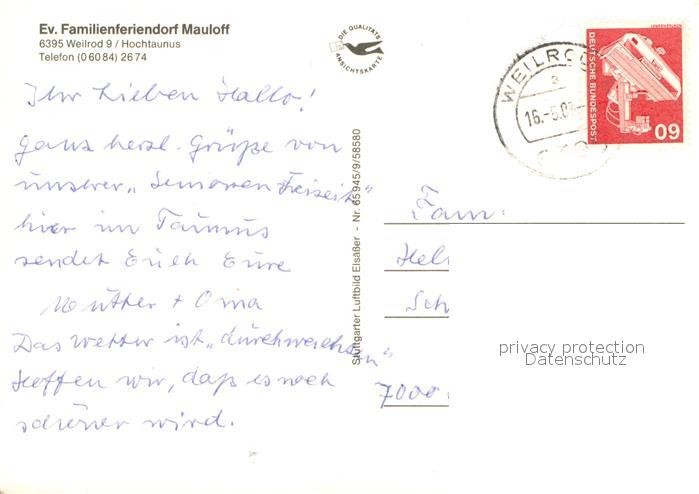 Ev. Familienferiendorf Mauloff
6395 Weilrod 9 / Hochtaunus
Telefon (0 60 84) 26 74
DIE QUALITÄTS
ANSICHTSKARTE
WEILRO
a
16.-6.8
DEUTSCHE BUNDESPOST
60
Ihr Lieben Hallo!
Ganz herzl. Grüße von
unserer „Senioren Freizeit"
hier im Taunus
sendet Euch Eure
Mutter + Oma
Das Wetter ist „durchwachsen"
Hoffen wir, daß es noch
schöner wird.
Stuttgarter Luftbild Elsäßer - Nr. 65945/9/58580
Fam.
Hel
Sch
7000
privacy protection
Datenschutz